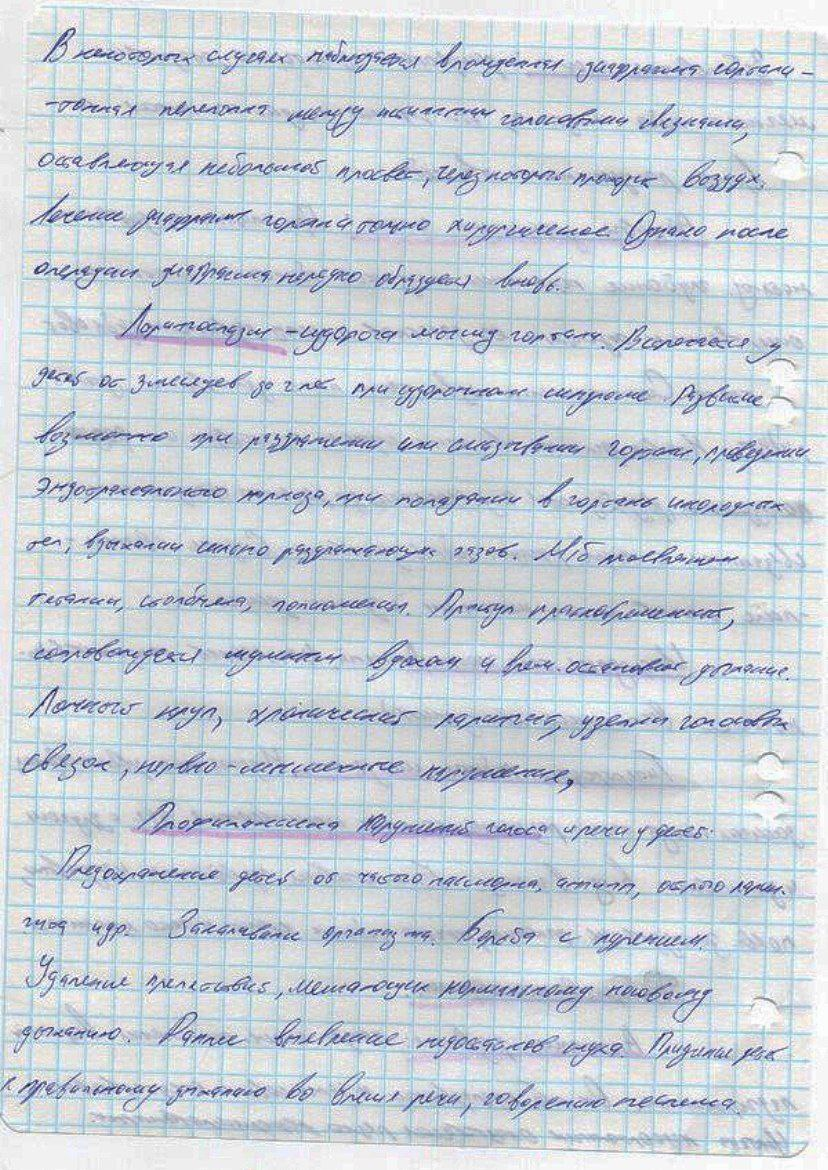 В некоторых случаях наблюдается врожденная диафрагма гортани -
- тонкая перепонка между истинными голосовыми связками,
оставляющая небольшой просвет, через который проходит воздух.
Лечение диафрагмы гортани только хирургическое. Однако после
операции диафрагма нередко образуется вновь.
Ларингоспазм - судорога мышц гортани. Встречается у
детей от 3 месяцев до 2 лет при судорожном синдроме. Развитие
возможно при раздражении или смазывании гортани, проведении
эндотрахеального наркоза, при попадании в гортань инородных
тел, вдыхании сильно раздражающих газов. М/б проявлением
тетании, столбняка, полиомиелита. Приступ кратковременный,
сопровождается шумным вдохом и врем. остановкой дыхания.
Ложный круп, хронический ларингит, узелки голосовых
связок, нервно-мышечные нарушения,
Профилактика нарушений голоса и речи у детей.
Предохранение детей от частого насморка, ангин, острого ларин-
гита и др. Закаливание организма. Борьба с курением.
Удаление препятствий, мешающих нормальному носовому
дыханию. Раннее выявление недостатков слуха. Приучение детей
к правильному дыханию во время речи, говорению